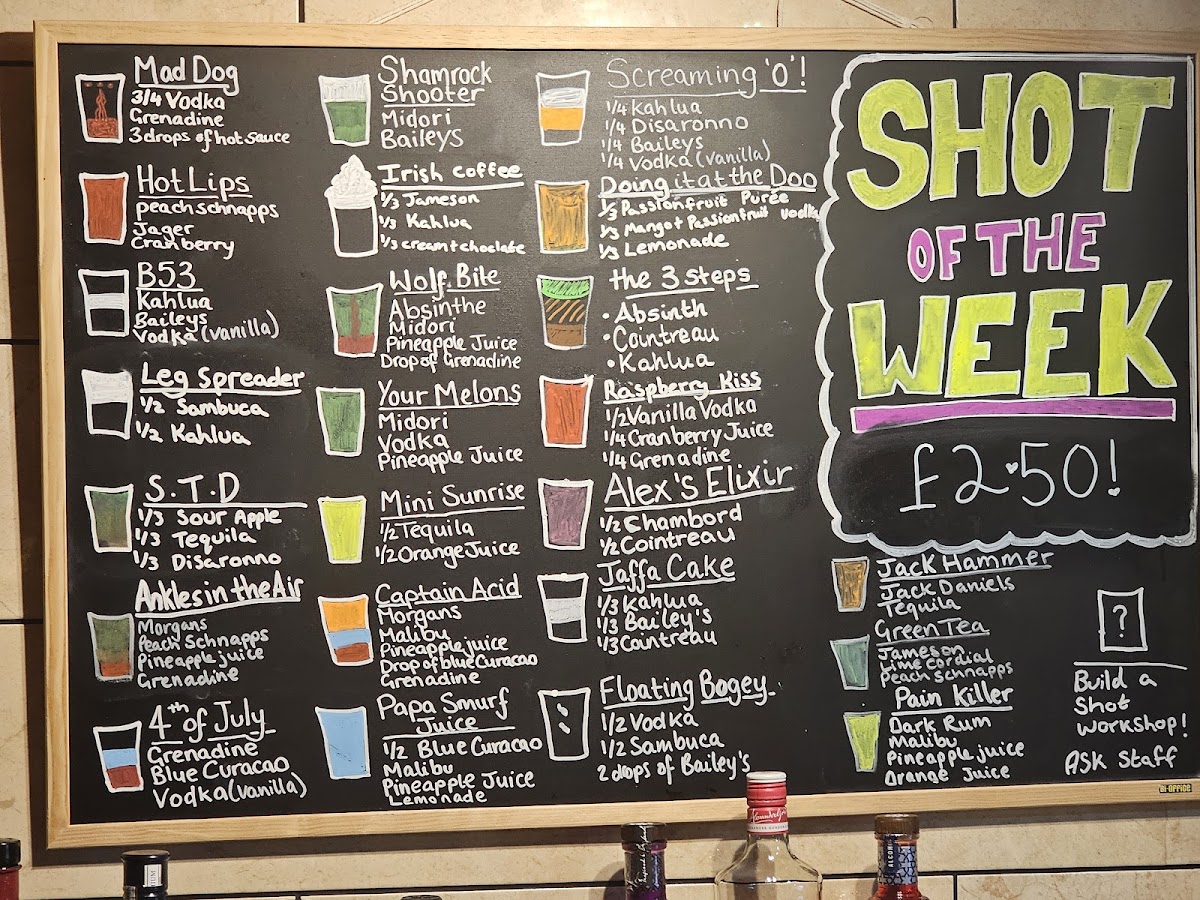 Mad Dog
3/4 Vodka
Grenadine
3 drops of hot sauce
Hot Lips
peach schnapps
Jager
Cranberry
B53
Kahlua
Baileys
Vodka (vanilla)
Leg Spreader
1/2 Sambuca
1/2 Kahlua
S.T.D
1/3 Sour Apple
1/3 Tequila
1/3 Disaronno
Ankles in the Air
Morgans
Peach Schnapps
Pineapple juice
Grenadine
4th of July
Grenadine
Blue Curacao
Vodka (vanilla)
Shamrock
Shooter
Midori
Baileys
Irish coffee
1/3 Jameson
1/3 Kahlua
1/3 cream + choclate
Wolf Bite
Absinthe
Midori
Pineapple Juice
Drop of Grenadine
Your Melons
Midori
Vodka
Pineapple Juice
Mini Sunrise
1/2 Tequila
1/2 Orange Juice
Captain Acid
Morgans
Malibu
Pineapple juice
Drop of blue Curacao
Grenadine
Papa Smurf
Juice
1/2 Blue Curacao
Malibu
Pineapple Juice
Lemonade
Screaming 'O'!
1/4 Kahlua
1/4 Disaronno
1/4 Baileys
1/4 Vodka (vanilla)
Doing it at the Doo
1/3 Passionfruit Purée
1/3 Mangot Passionfruit vodka
1/3 Lemonade
the 3 steps
• Absinth
• Cointreau
• Kahlua
Raspberry Kiss
1/2 Vanilla Vodka
1/4 Cranberry Juice
1/4 Grenadine
Alex's Elixir
1/2 Chambord
1/2 Cointreau
Jaffa Cake
1/3 Kahlua
1/3 Bailey's
1/3 Cointreau
Floating Bogey
1/2 Vodka
1/2 Sambuca
2 drops of Bailey's
SHOT
OF THE
WEEK
£2.50!
Jack Hammer
Jack Daniels
Tequila
Green Tea
Jameson
Lime cordial
peach schnapps
Pain Killer
Dark Rum
Malibu
Pineapple juice
Orange Juice
?
Build a
Shot
workshop!
Ask Staff
Bi-OFFICE